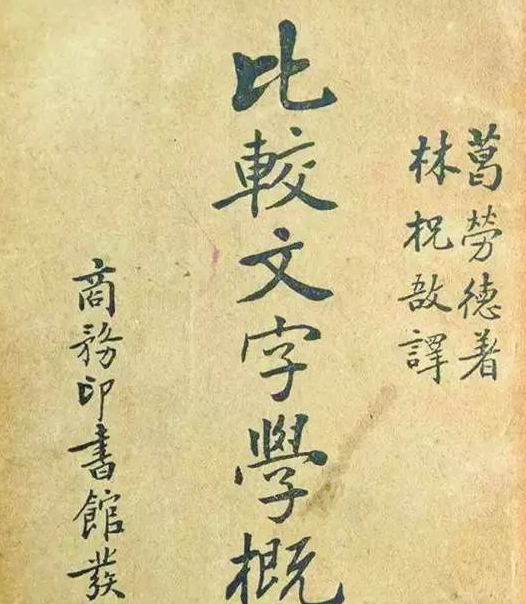 葛勞德著
林柷敔譯
比較文字學概
商務印書館發